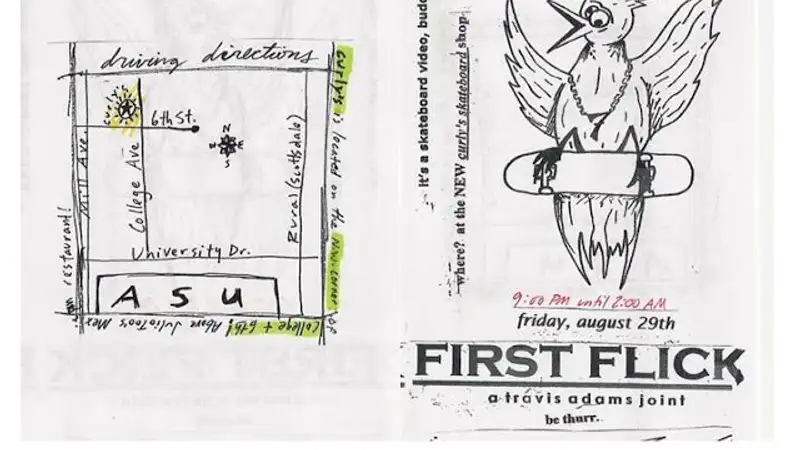 driving directions
curly's
6th St.
N
E
S
W
Mill Ave
College Ave
Rural (Scottsdale)
University Dr.
ASU
curly's is located on the N.W. corner of
College + 6th! Above Julioto's Mex
restaurant!
it's a skateboard video, budd
where? at the NEW curly's skateboard shop
9:00 PM until 2:00 AM
friday, august 29th
FIRST FLICK
a travis adams joint
be thurr.